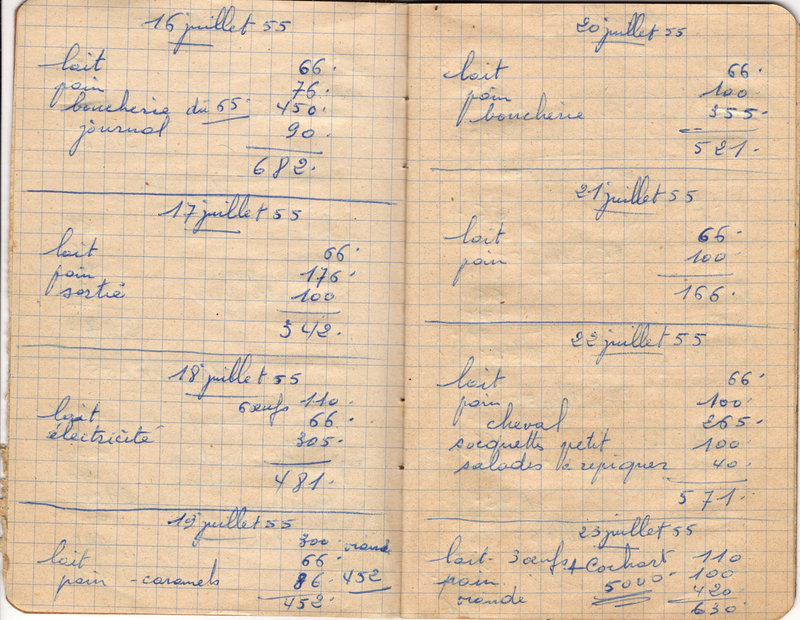 16 juillet 55
lait 66.
pain 76.
boucherie du 65. 450.
journal 90.
682.
17 juillet 55
lait 66.
pain 176.
sortie 100
342.
18 juillet 55
6 œufs 110.
lait 66.
électricité 305.
481.
19 juillet 55
300 viande
lait 66.
pain - caramels 86. 452
452.
20 juillet 55
lait 66.
pain 100.
boucherie 355.
521.
21 juillet 55
lait 66.
pain 100.
166.
22 juillet 55
lait 66.
pain 100.
cheval 265.
socquettes petit 100.
salades à repiquer 40.
571.
23 juillet 55
lait - 3 œufs 110
pain 5000 100
viande 420
630.